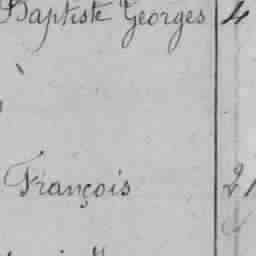 Baptiste Georges 4
François 21